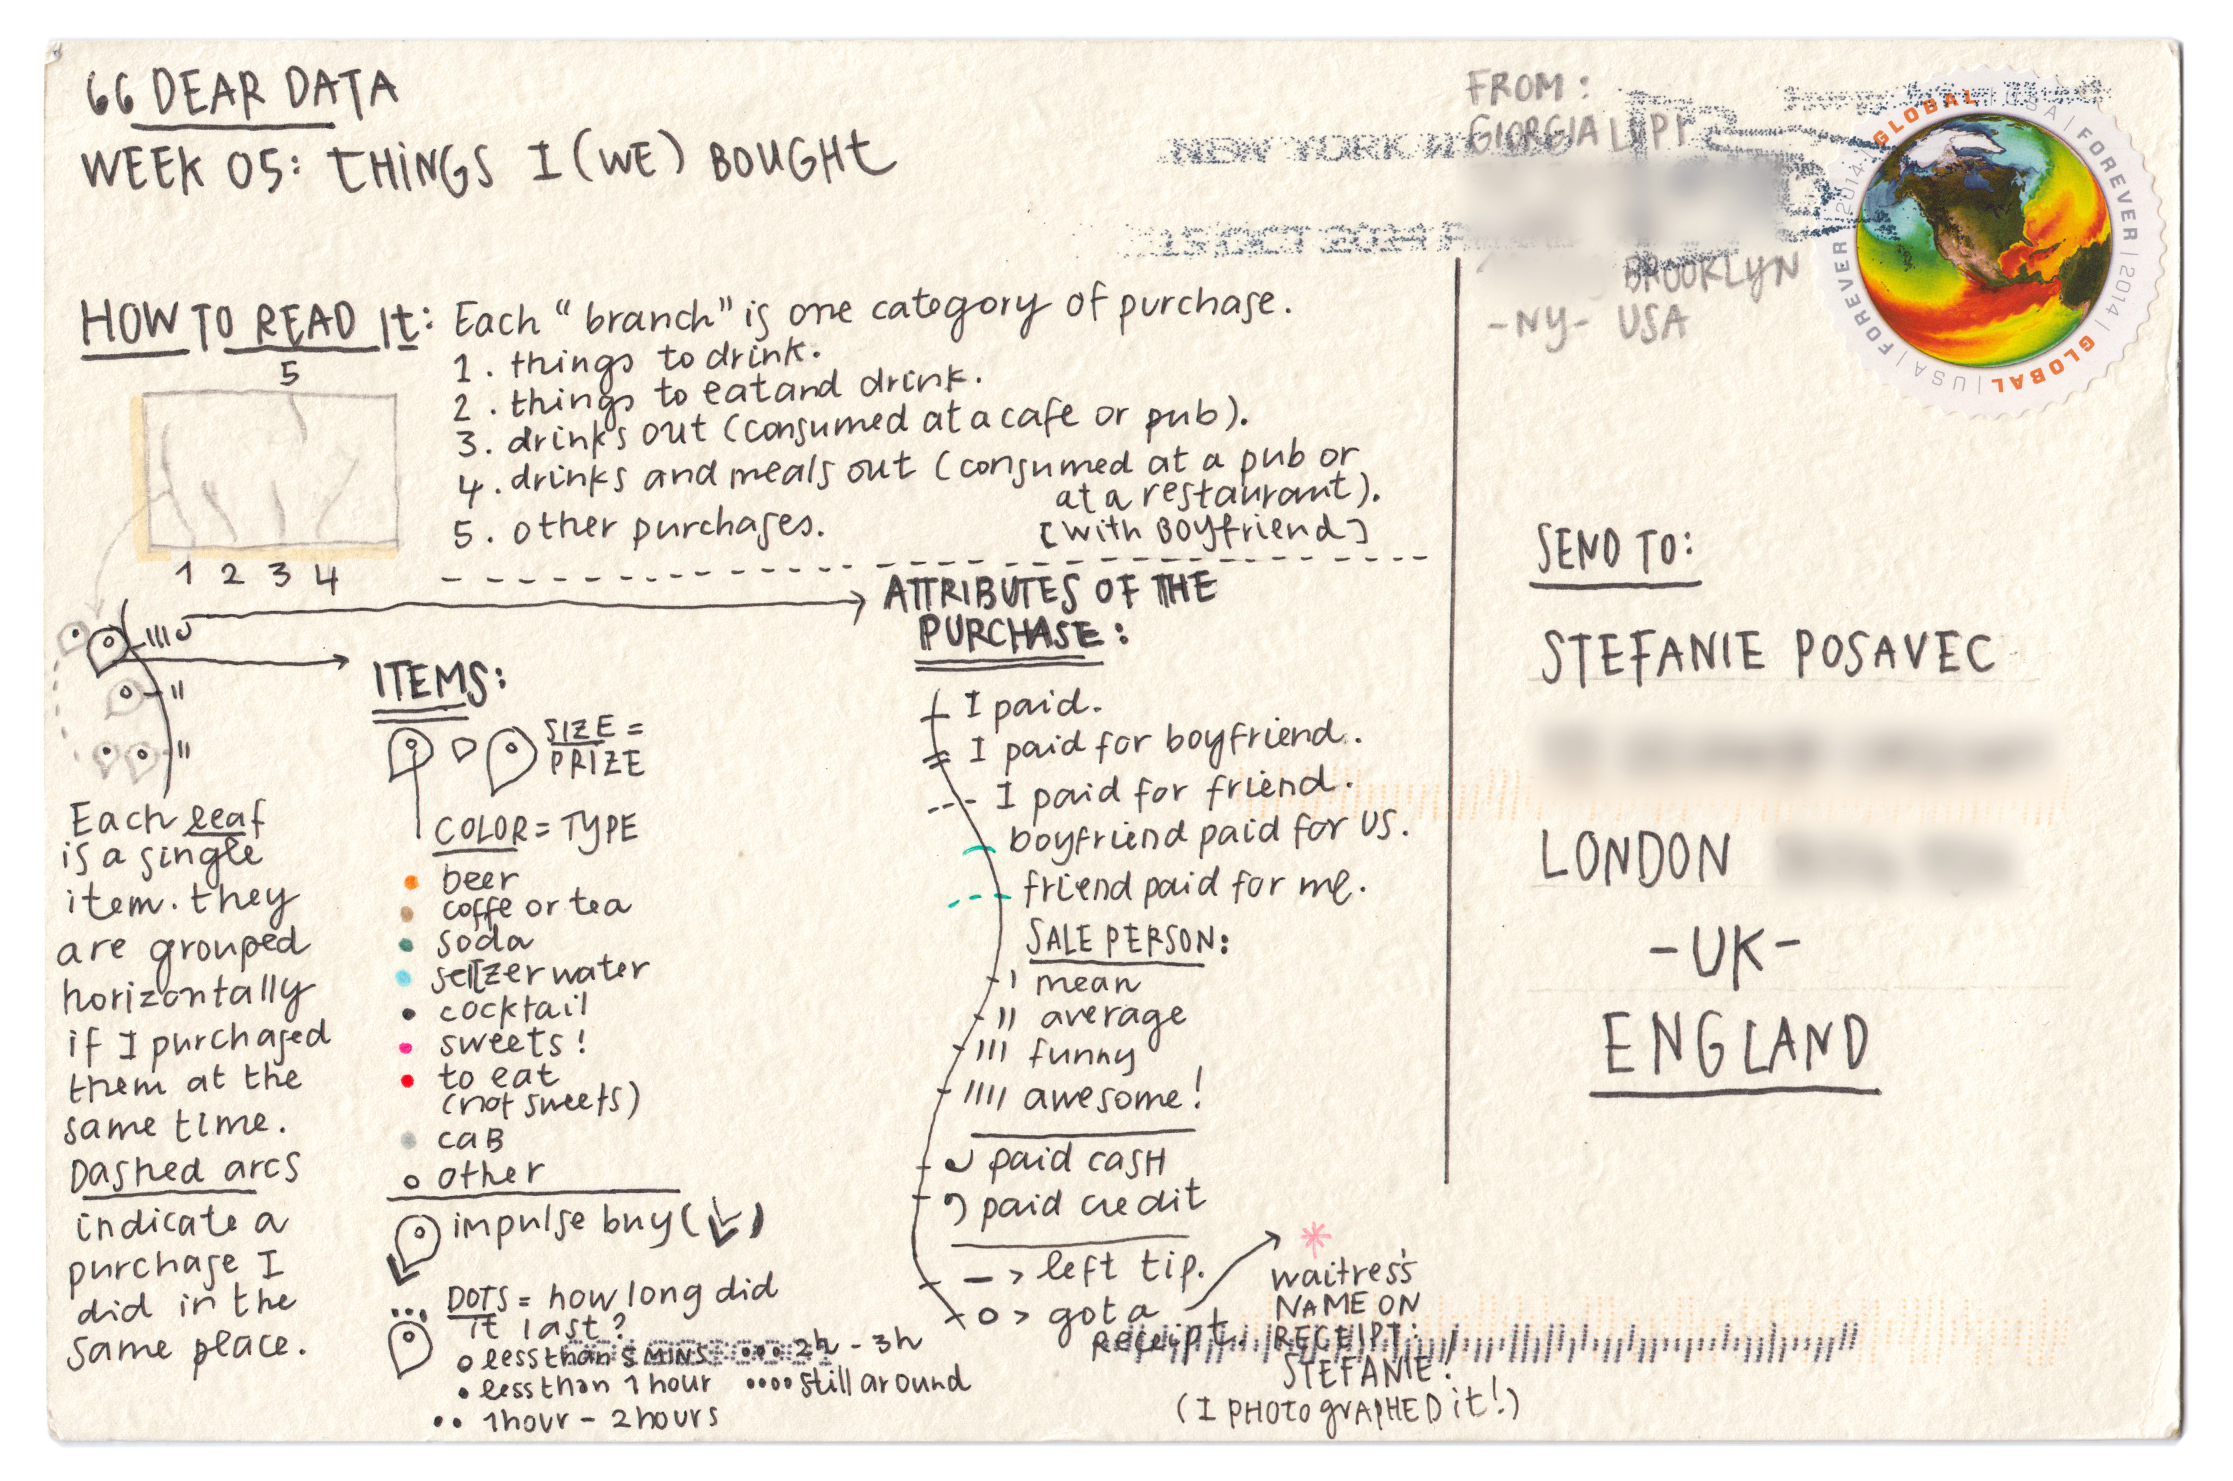 66 DEAR DATA
WEEK 05: THINGS I (WE) BOUGHT
HOW TO READ It: Each "branch" is one category of purchase.
1. things to drink.
2. things to eat and drink.
3. drinks out (consumed at a cafe or pub).
4. drinks and meals out (consumed at a pub or
at a restaurant).
[with Boyfriend]
5. other purchases.
5
1 2 3 4
Each leaf
is a single
item. they
are grouped
horizontally
if I purchased
them at the
same time.
Dashed arcs
indicate a
purchase I
did in the
same place.
ITEMS:
SIZE =
PRIZE
COLOR = TYPE
beer
coffe or tea
soda
seltzer water
cocktail
sweets!
to eat
(not sweets)
caB
other
impulse buy ( )
DOTS = how long did
it last?
less than 5 MINS
less than 1 hour
1 hour - 2 hours
2h - 3h
still around
ATTRIBUTES OF THE
PURCHASE:
I paid.
I paid for boyfriend.
I paid for friend.
boyfriend paid for US.
friend paid for me.
SALE PERSON:
mean
average
funny
awesome!
paid casH
paid credit
— > left tip.
o > got a
receipt.
waitress's
NAME ON
RECEIPT:
STEFANIE!
(I PHOTOGRAPHED it!)
FROM:
GIORGIA LUPI
BROOKLYN
-NY- USA
NEW YORK
15 OCT 2014 P
GLOBAL | USA | FOREVER | 2014 | GLOBAL | USA | FOREVER 2014
SEND TO:
STEFANIE POSAVEC
LONDON
-UK-
ENGLAND